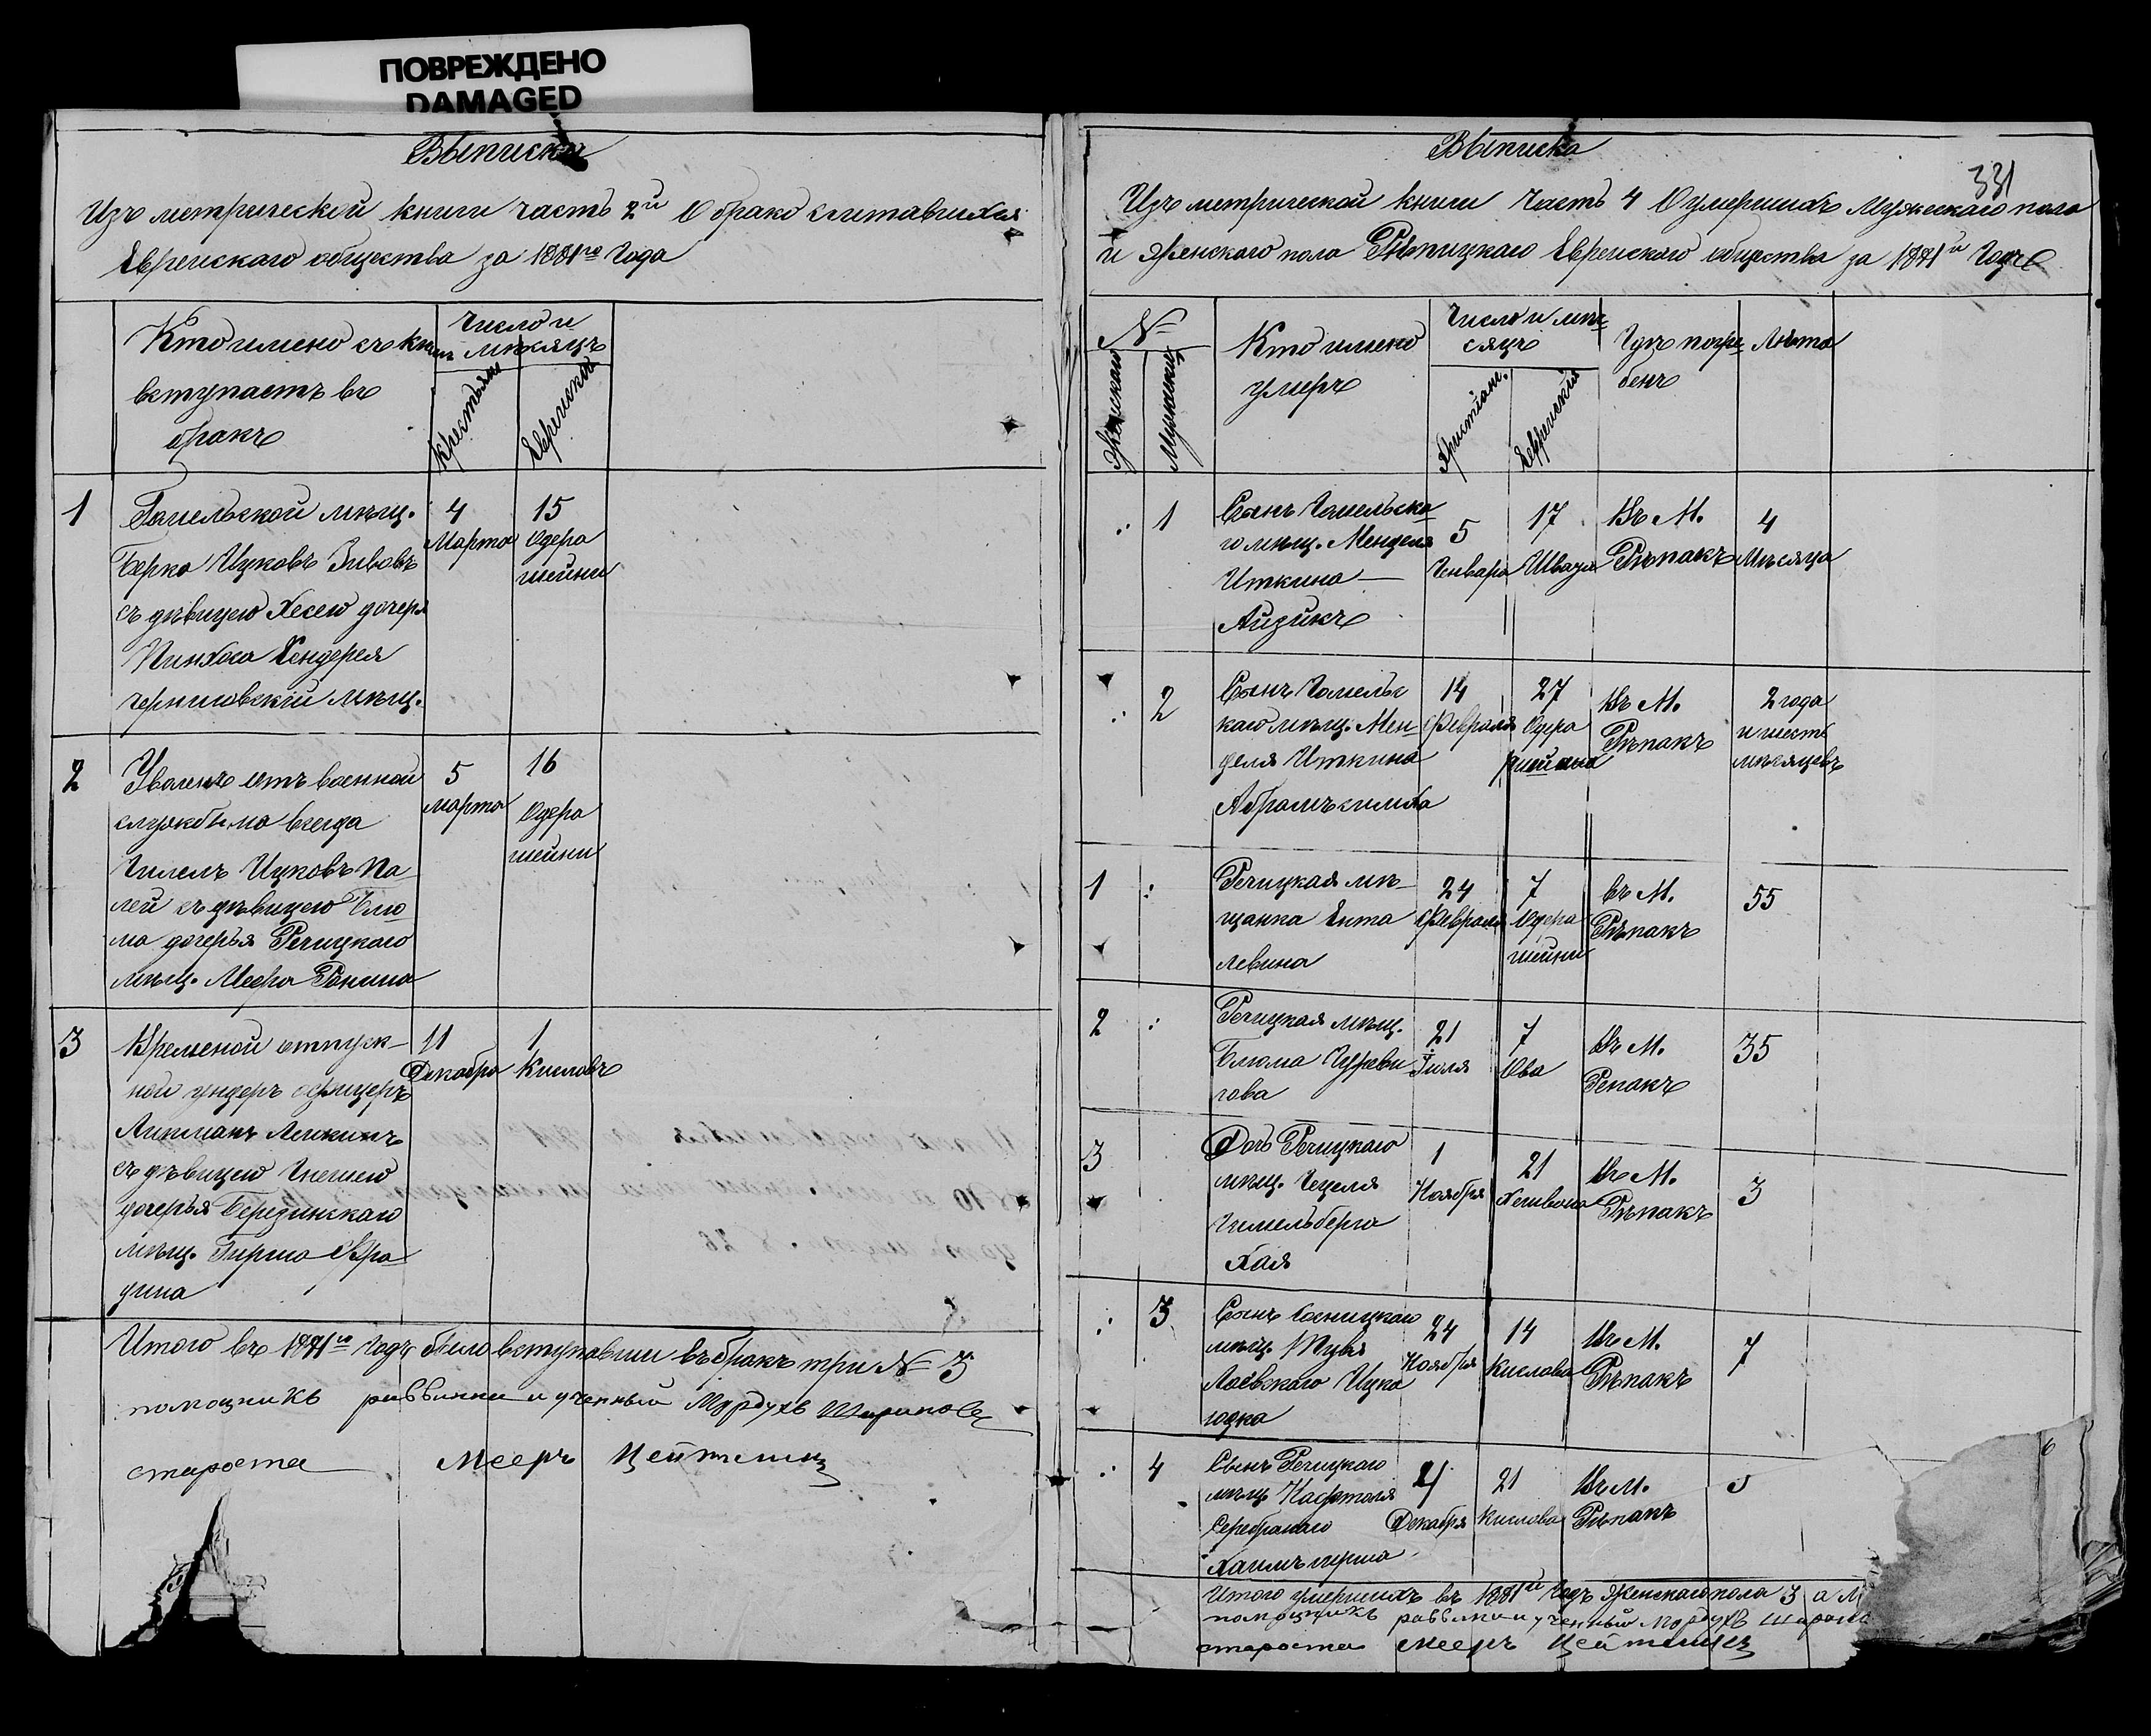 ПОВРЕЖДЕНО
DAMAGED
Выписка
Изъ метрической книги часть 2й О брако считавшихся
Еврейскаго общества за 1881го Года
Кто имено съ кемъ
вступаетъ въ
бракъ
Число и
мѣсяцъ
Еврейской
1
Гомельской мѣщ.
Берко Ицковъ
съ дѣвицею Хесею дочеря
Пинхоса
черниговскій мѣщ.
4
Марта
15
Одера
шейни
2
Уволенъ отъ военной
службы на всегда
Ицковъ Па
лей съ дѣвицею Блю
ма дочерья Речицкаго
мѣщ. Меера Ронина
5
марта
16
Одера
шейни
3
Временой отпуск-
ной ундеръ офицеръ
Липманъ
съ дѣвицею
дочерья Березинскаго
мѣщ. Гирша
дина
11
Декабра
1
Кисловъ
Итого въ 1881м Году было вступовшии въ бракъ три № 3
помощникъ раввина и ученный Мордухъ
староста Мееръ Цейтлинъ
Выписка
331
Изъ метрической книги Часть 4 О умершихъ Мужескаго пола
и Женского пола Рѣпицкаго Еврейского общества за 1881й Годъ
№
Женскаго
Мужескаго
Кто имено
умеръ
Число и мѣ-
сяцъ
Христіан.
Еврейскій
Гдѣ погре-
бенъ
Лѣта
1
Сынъ Гомельска
го мѣщ. Менделя
Иткина —
Айзикъ
5
Генвара
17
Швата
Въ М.
Рѣпакъ
4
Мѣсяца
2
Сынъ Гомельс
каго мѣщ. Мен-
деля Иткина
Абрамъ
14
Февраля
27
Одера
Въ М.
Рѣпакъ
2 года
и шесть
мѣсяцевъ
1
Речицкая мѣ-
щанка Ента
Левина
24
Февраля
7
Одера
шейни
въ М.
Рѣпакъ
55
2
Речицкая мѣщ.
Блюма
21
Іюля
7
Ова
Въ М.
Репакъ
35
3
Дочь Речицкаго
мѣщ.
Гимельберга
Хая
1
Ноября
21
Хешвона
Въ М.
Рѣпакъ
3
3
Сынъ
мѣщ.
Лоевского Ицка
24
Ноября
14
Кислова
Въ М.
Рѣпакъ
7
4
Сынъ Речицкаго
мѣщ. Нафтоля
Серебранаго
Хаимъ гирша
21
Декабря
21
Кислова
Въ М.
Рѣпакъ
Итого умершихъ въ 1881й Годъ Женскаго пола 3 а М
помощникъ раввина и ученный Мордухъ
староста Мееръ Цейтлинъ